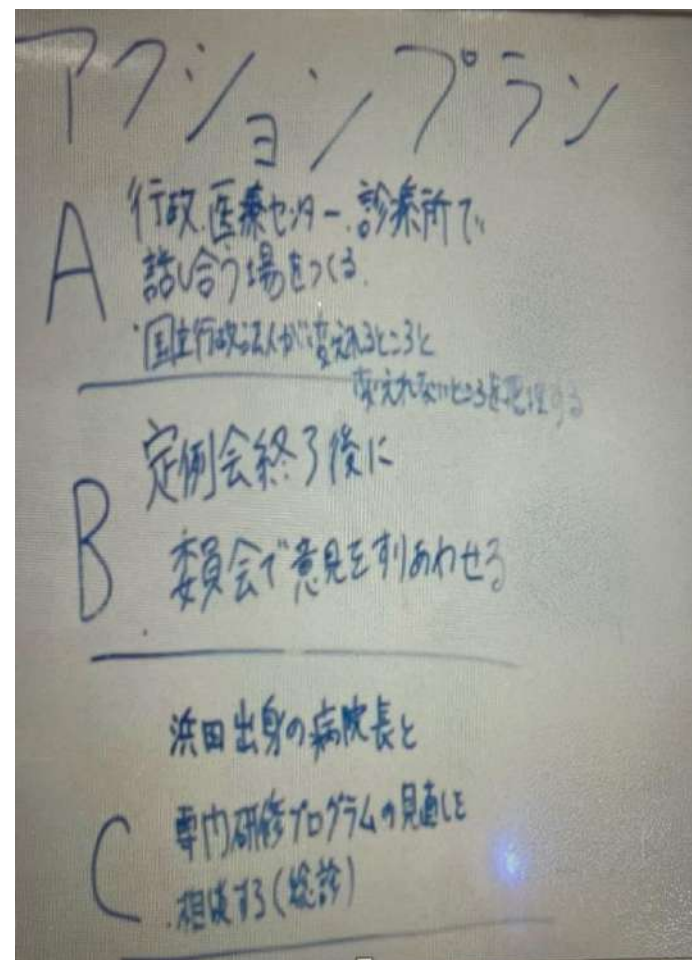 アクションプラン
A 行政.医療センター.診療所で
話し合う場をつくる.
・国立行政法人が変えれるところと
変えれないところを整理する
B 定例会終了後に
委員会で意見をすりあわせる
浜田出身の病院長と
C 専門研修プログラムの見直しを
相談する(総診)